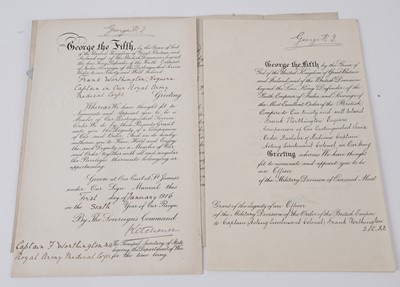 George R.I.
George the Fifth, by the Grace of God
of the United Kingdom of Great Britain
and Ireland and of the British Dominions
beyond the Seas King, Defender of the Faith, Emperor
of India, Sovereign of the Distinguished Service
Order, to Our Trusty and Well beloved
Frank Worthington, Esquire
Captain in Our Royal Army
Medical Corps
Greeting
Whereas We have thought fit to
Nominate and Appoint you to be a
Member of Our Distinguished Service
Order We do by these Presents
you the Dignity of a Companion
of Our said Order
authorize you to Have Hold and Enjoy
the said Dignity
Order together with all and singular
the Privileges thereunto belonging or
appertaining.
Given at Our Court at St. James's
under Our Sign Manual this
First day of January 1916
in the Sixth Year of Our Reign
By The Sovereign's Command
Kitchener
Captain F. Worthington
Royal Army Medical Corps
The Principal Secretary of State
having the Department of War
for the time being
George R.I.
George the Fifth by the Grace of
God of the United Kingdom of Great Britain
and Ireland and of the British Dominions
beyond the Seas King, Defender of the
Faith, Emperor of India and Sovereign of
the Most Excellent Order of the British
Empire to Our trusty and well beloved
Frank Worthington Esquire
Companion of Our Distinguished Service
Order
Acting Lieutenant Colonel in Our Army
Greeting Whereas We have thought
fit to nominate and appoint you to be
an Officer
of the Military Division of Our said Most
Grant of the dignity of an Officer
of the Military Division of the Order of the British Empire
to Captain (Acting Lieutenant Colonel) Frank Worthington